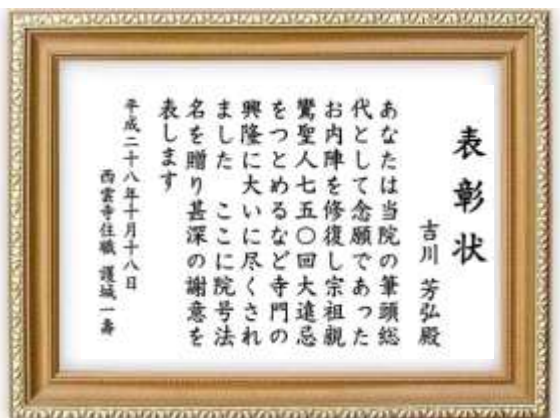 表彰状
吉川 芳弘殿
あなたは当院の筆頭総
代として念願であった
お内陣を修復し宗祖親
鸞聖人七五〇回大遠忌
をつとめるなど寺門の
興隆に大いに尽くされ
ました ここに院号法
名を贈り甚深の謝意を
表します
平成二十八年十月十八日
西雲寺住職 護城一寿